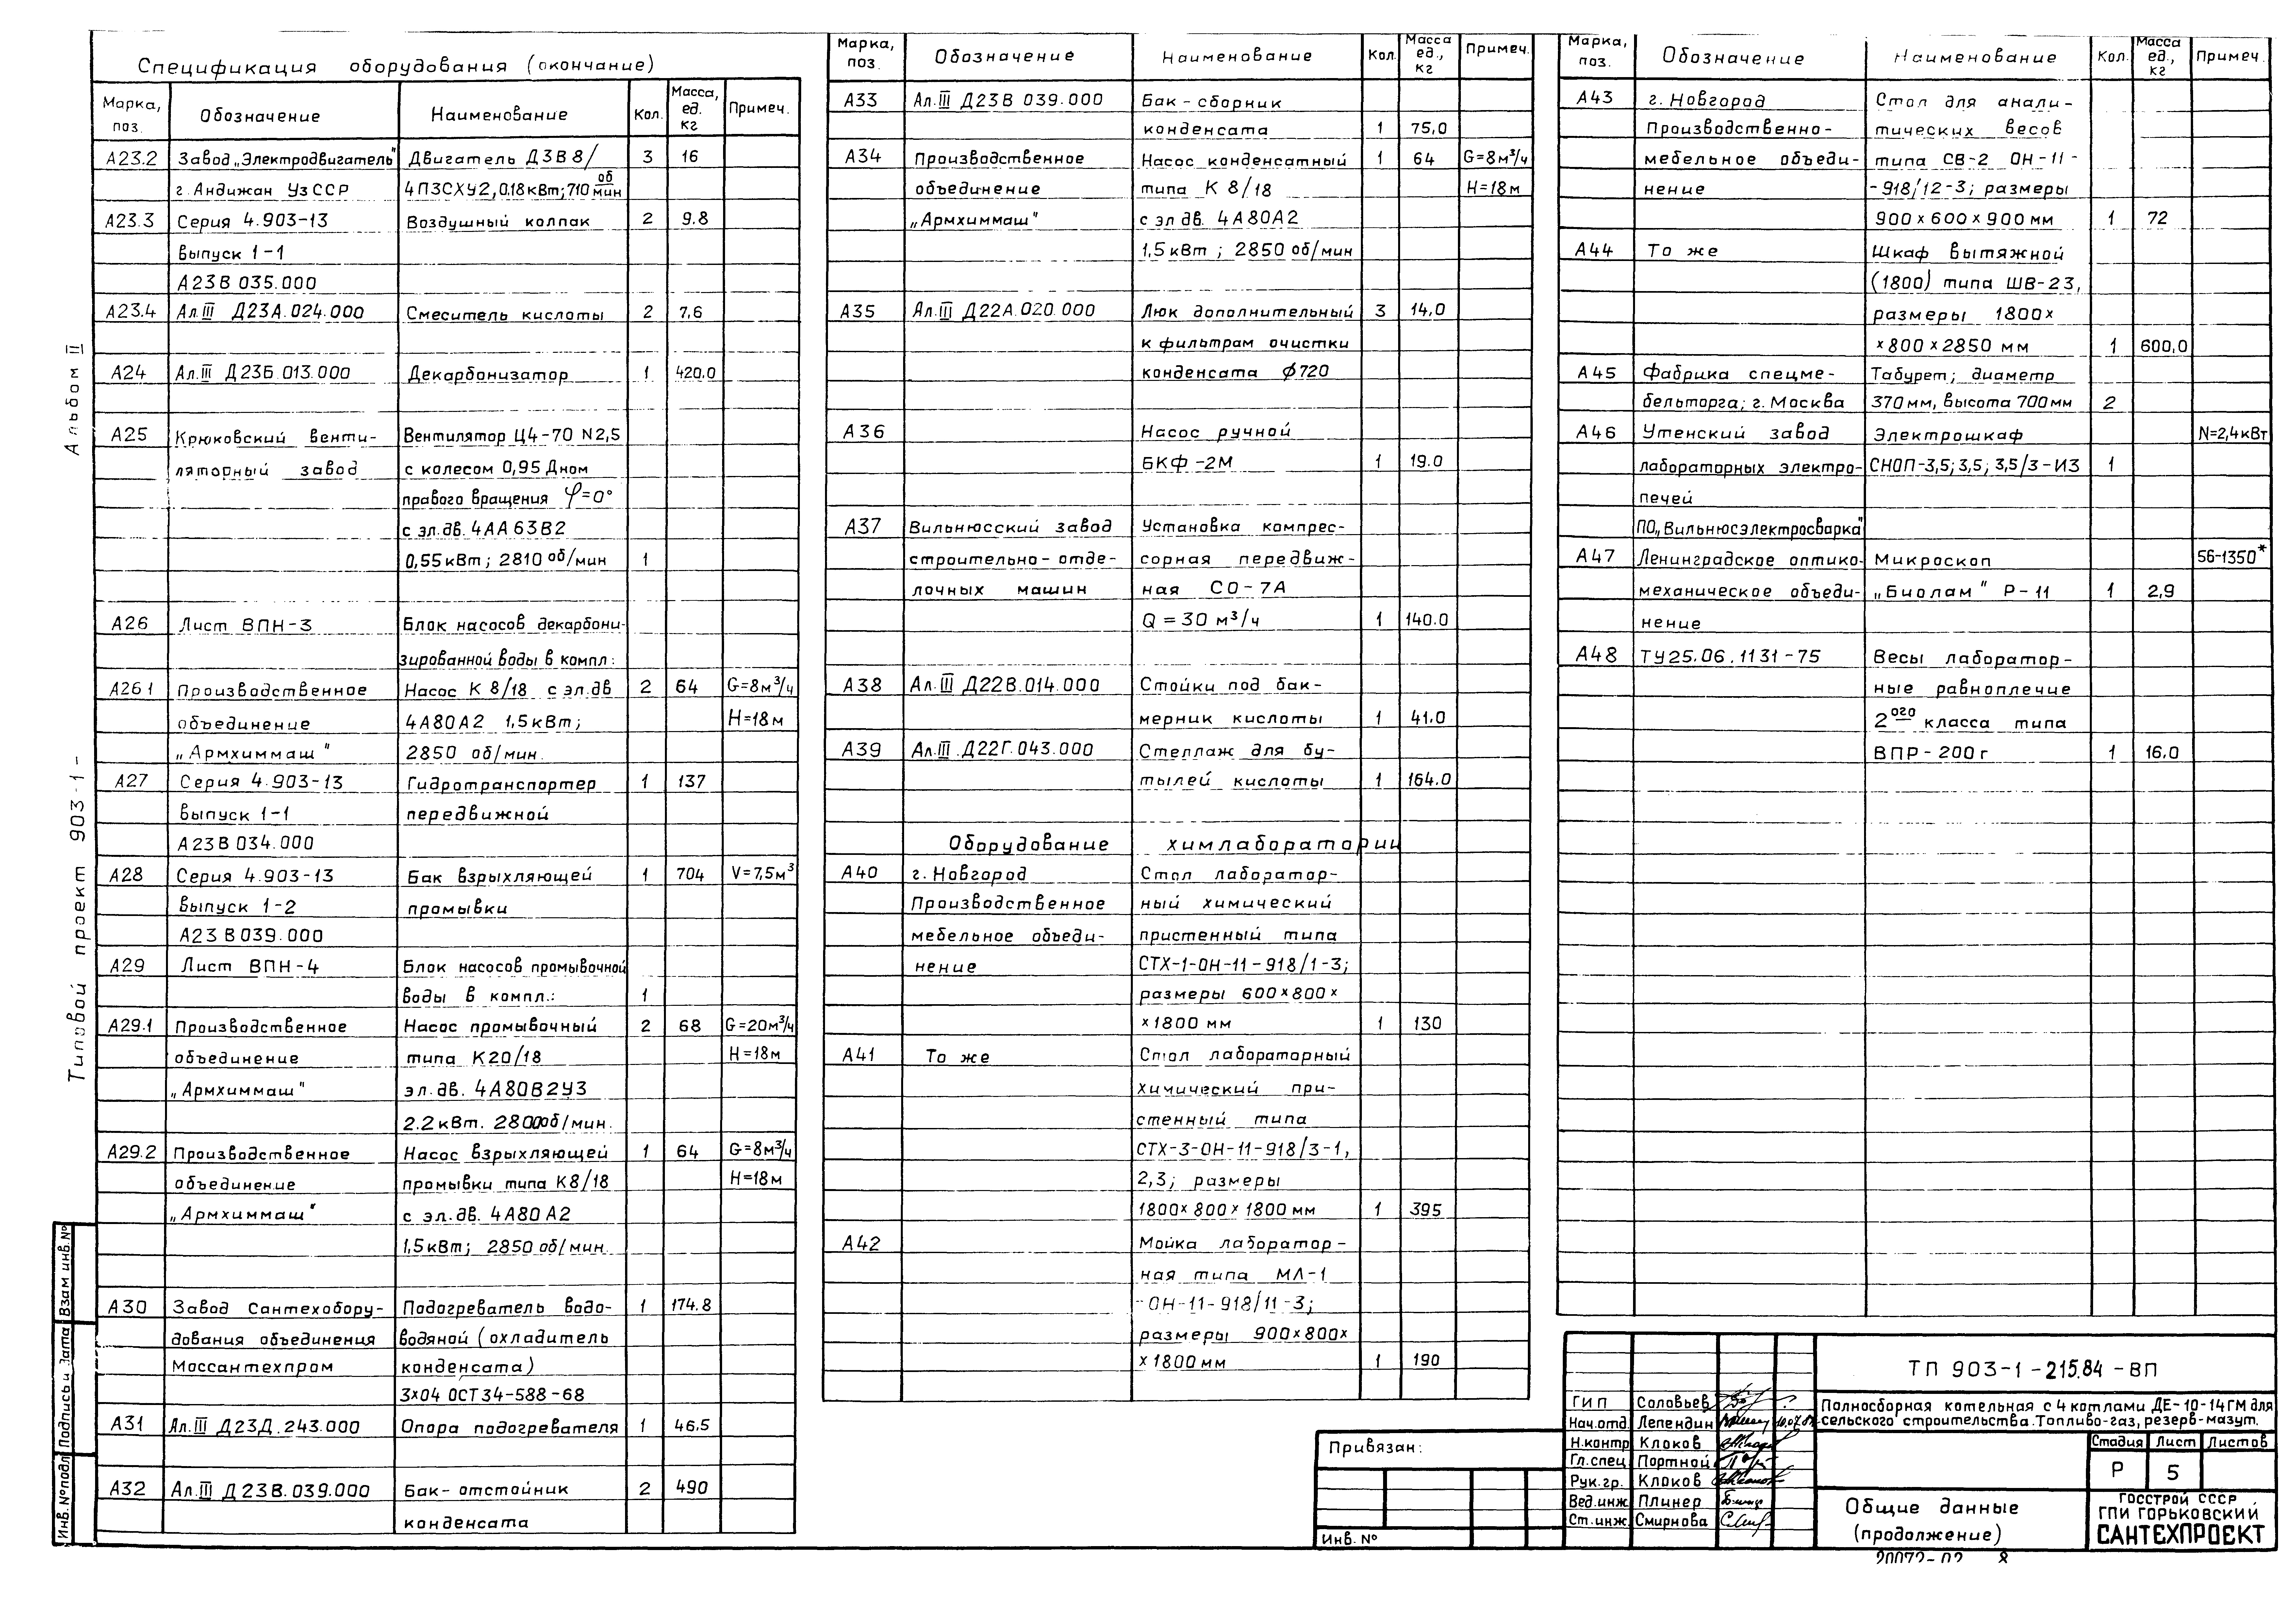 Альбом II
Типовой проект 903-1-
Взам инв. №
Подпись и дата
Инв. № подл
Спецификация оборудования (окончание)
Марка, поз. Обозначение Наименование Кол. Масса, ед. кг Примеч.
А23.2 Завод „Электродвигатель" Двигатель ДЗВ8/ 3 16
г. Андижан УзССР 4ПЗСХУ2, 0.18кВт; 710 об/мин
А23.3 Серия 4.903-13 Воздушный колпак 2 9.8
выпуск 1-1
А23В 035.000
А23.4 Ал.III Д23А.024.000 Смеситель кислоты 2 7,6
А24 Ал.III Д23Б.013.000 Декарбонизатор 1 420.0
А25 Крюковский венти- Вентилятор Ц4-70 N2,5
ляторный завод с колесом 0,95 Дном
правого вращения φ=0°
с эл.дв. 4АА63В2
0,55кВт; 2810 об/мин 1
А26 Лист ВПН-3 Блок насосов декарбони-
зированной воды в компл:
А26.1 Производственное Насос К 8/18 с эл.дв 2 64 G=8м³/ч
объединение 4А80А2 1,5кВт; Н=18м
„Армхиммаш" 2850 об/мин.
А27 Серия 4.903-13 Гидротранспортер 1 137
выпуск 1-1 передвижной
А23В 034.000
А28 Серия 4.903-13 Бак взрыхляющей 1 704 V=7,5м³
выпуск 1-2 промывки
А23В039.000
А29 Лист ВПН-4 Блок насосов промывочной
воды в компл.: 1
А29.1 Производственное Насос промывочный 2 68 G=20м³/ч
объединение типа К20/18 Н=18м
„Армхиммаш" эл.дв. 4А80В2У3
2.2кВт. 2800об/мин.
А29.2 Производственное Насос взрыхляющей 1 64 G=8м³/ч
объединение промывки типа К8/18 Н=18м
„Армхиммаш" с эл.дв. 4А80А2
1,5кВт; 2850 об/мин
А30 Завод Сантехобору- Подогреватель водо- 1 174.8
дования объединения водяной (охладитель
Моссантехпром конденсата)
3х04 ОСТ34-588-68
А31 Ал.III Д23Д.243.000 Опора подогревателя 1 46.5
А32 Ал.III Д23В.039.000 Бак-отстойник 2 490
конденсата
Марка, поз. Обозначение Наименование Кол. Масса ед., кг Примеч.
А33 Ал.III Д23В 039.000 Бак-сборник
конденсата 1 75,0
А34 Производственное Насос конденсатный 1 64 G=8м³/ч
объединение типа К 8/18 Н=18м
„Армхиммаш" с эл дв. 4А80А2
1,5кВт; 2850 об/мин
А35 Ал.III Д22А.020.000 Люк дополнительный 3 14,0
к фильтрам очистки
конденсата ф720
А36 Насос ручной
БКФ-2М 1 19.0
А37 Вильнюсский завод Установка компрес-
строительно-отде- сорная передвиж-
лочных машин ная СО-7А
Q = 30 м³/ч 1 140.0
А38 Ал.III Д22В.014.000 Стойки под бак-
мерник кислоты 1 41.0
А39 Ал.III.Д22Г.043.000 Стеллаж для бу-
тылей кислоты 1 164.0
Оборудование химлаборатории
А40 г. Новгород Стол лаборатор-
Производственное ный химический
мебельное объеди- пристенный типа
нение СТХ-1-ОН-11-918/1-3;
размеры 600х800х
х1800 мм 1 130
А41 То же Стол лабораторный
химический при-
стенный типа
СТХ-3-ОН-11-918/3-1,
2,3; размеры
1800х800х1800 мм 1 395
А42 Мойка лаборатор-
ная типа МЛ-1
-ОН-11-918/11-3;
размеры 900х800х
х1800 мм 1 190
Марка, поз. Обозначение Наименование Кол. Масса ед., кг Примеч.
А43 г. Новгород Стол для анали-
Производственно- тических весов
мебельное объеди- типа СВ-2 ОН-11-
нение -918/12-3; размеры
900х600х900 мм 1 72
А44 То же Шкаф вытяжной
(1800) типа ШВ-23,
размеры 1800х
х800х2850 мм 1 600,0
А45 Фабрика спецме- Табурет; диаметр
бельторга; г. Москва 370мм, высота 700мм 2
А46 Утенский завод Электрошкаф N=2,4кВт
лабораторных электро- СНОП-3,5; 3,5; 3,5/3-ИЗ 1
печей
ПО„Вильнюсэлектросварка"
А47 Ленинградское оптико- Микроскоп 56-1350*
механическое объеди- „Биолам" Р-11 1 2,9
нение
А48 ТУ25.06.1131-75 Весы лаборатор-
ные равноплечие
2ого класса типа
ВПР-200г 1 16.0
Привязан:
Инв. №
ГИП Соловьев
Нач.отд. Лепендин
Н.контр Клоков
Гл.спец. Портной
Рук.гр. Клоков
Вед.инж Плинер
Ст.инж. Смирнова
ТП 903-1-215.84-ВП
Полносборная котельная с 4 котлами ДЕ-10-14ГМ для
сельского строительства. Топливо-газ, резерв-мазут.
Стадия Лист Листов
Р 5
Общие данные
(продолжение)
ГОССТРОЙ СССР
ГПИ ГОРЬКОВСКИЙ
САНТЕХПРОЕКТ
20072-02 8